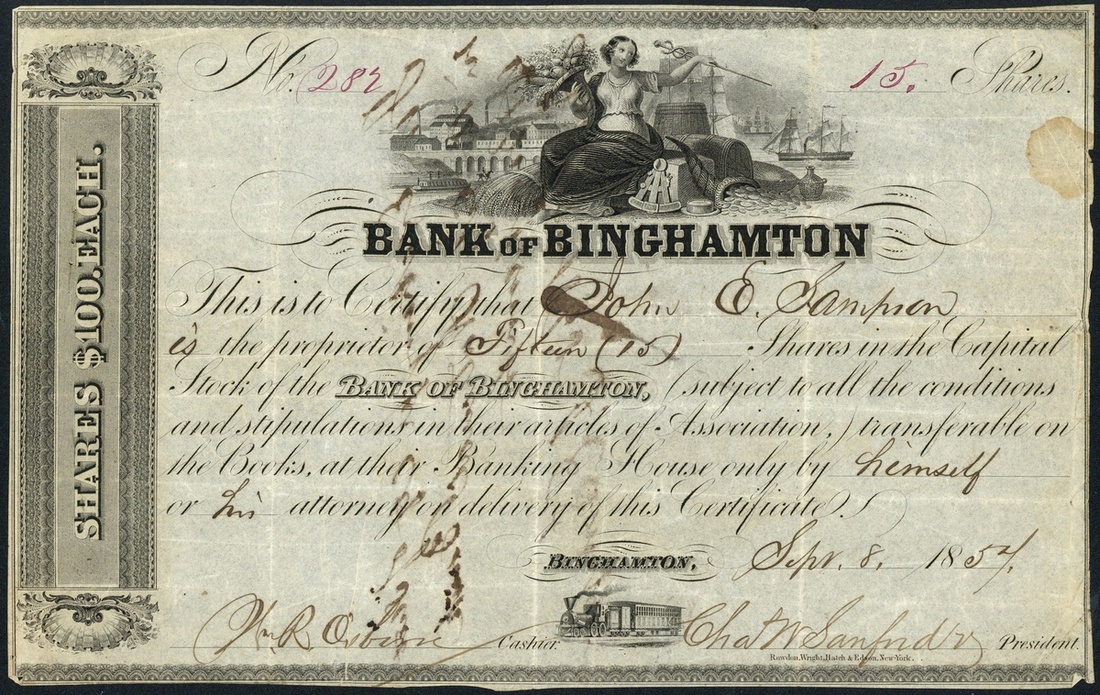 No. 287 15. Shares.
SHARES $100. EACH.
BANK OF BINGHAMTON
This is to Certify that John E. Sampson
is the proprietor of Fifteen (15) Shares in the Capital
Stock of the BANK OF BINGHAMTON, (subject to all the conditions
and stipulations in their articles of Association,) transferable on
the Books, at their Banking House only by himself
or his attorney on delivery of this Certificate.
BINGHAMTON, Sept. 8. 1857.
Wm R Osborn Cashier. Chas W Sanford President.
Rawdon, Wright, Hatch & Edson, New-York.